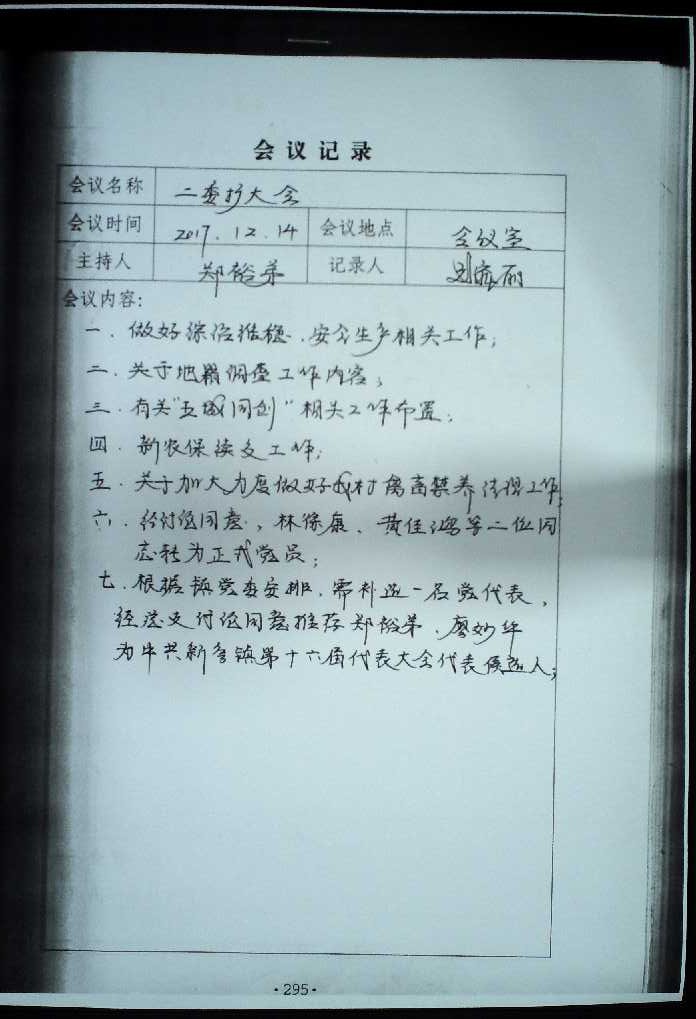 会议记录
会议名称 二委扩大会
会议时间 2017.12.14 会议地点 会议室
主持人 郑裕弟 记录人 刘 丽
会议内容:
一. 做好综治维稳、安全生产相关工作;
二. 关于地籍调查工作内容;
三. 有关"五城同创"相关工作布置;
四. 新农保续交工作;
五. 关于加大力度做好我村禽畜禁养清理工作;
六. 经讨论同意, 林 康、黄佳鸿等二位同
志转为正式党员;
七. 根据镇党委安排, 需补选一名党代表,
经总支讨论同意推荐郑裕弟、廖妙华
为中共新 镇第十六届代表大会代表候选人;
·295·